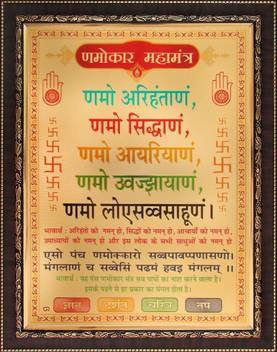 णमोकार महामंत्र
णमो अरिहंताणं,
णमो सिद्धाणं,
णमो आयरियाणं,
णमो उवज्झायाणं,
णमो लोएसव्वसाहूणं।
भावार्थ : अरिहंतो को नमन् हो, सिद्धों को नमन् हो, आचार्यों को नमन् हो,
उपाध्यायों को नमन् हो और इस लोक के सभी साधुओं को नमन् हो
एसो पंच णमोक्कारो सव्वपावप्पणासणो।
मंगलाणं च सव्वेसिं पढमं हवइ मंगलम् ।।
भावार्थ : यह पंच णमोकार मंत्र सब पापों का नाश करने वाला है।
ज्ञान दर्शन चरित्र तप